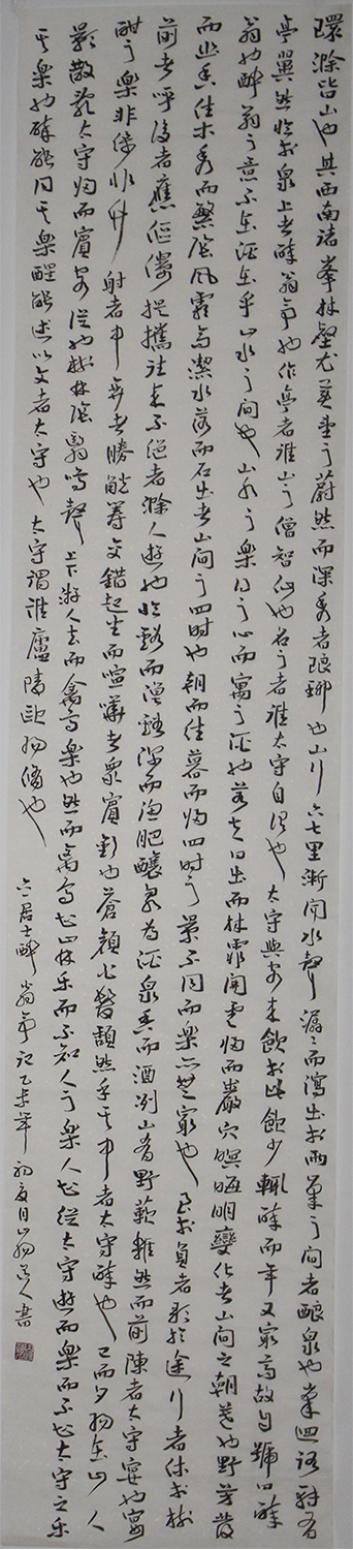 環滁皆山也其西南諸峯林壑尤美望之蔚然而深秀者琅琊也山行六七里漸聞水聲潺々而瀉出於兩峯之間者釀泉也峯迴路轉有
亭翼然臨於泉上者醉翁亭也作亭者誰山之僧智仙也名之者誰太守自謂也太守與客來飲於此飲少輒醉而年又最高故自號曰醉
翁也醉翁之意不在酒在乎山水之間也山水之樂得之心而寓之酒也若夫日出而林霏開雲歸而巖穴暝晦明變化者山間之朝暮也野芳發
而幽香佳木秀而繁陰風霜高潔水落而石出者山間之四時也朝而往暮而歸四時之景不同而樂亦無窮也至於負者歌於途行者休於樹
前者呼後者應傴僂提攜往來不絕者滁人遊也臨谿而漁谿深而漁肥釀泉為酒泉香而酒冽山肴野蔌雜然而前陳者太守宴也宴
酣之樂非絲非竹射者中弈者勝觥籌交錯起坐而喧嘩者衆賓歡也蒼顏白髮頹然乎其中者太守醉也已而夕陽在山人
影散亂太守歸而賓客從也樹林陰翳鳴聲上下遊人去而禽鳥樂也然而禽鳥知山林樂而不知人之樂人知從太守遊而樂而不知太守之樂
其樂也醉能同其樂醒能述以文者太守也太守謂誰廬陵歐陽脩也
六居士醉翁亭記乙未年初夏月山人書